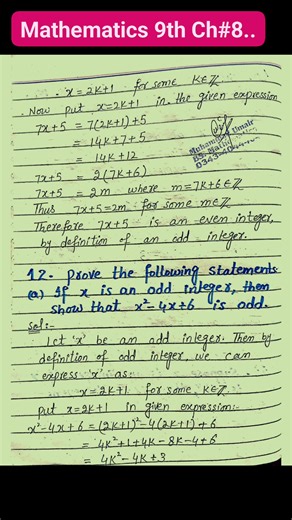 Mathematics 9th Ch#8..
x = 2K+1 for some K∈ℤ
Now put x=2K+1 in the given expression
7x+5 = 7(2K+1)+5
= 14K+7+5
= 14K+12
7x+5 = 2(7K+6)
7x+5 = 2m where m=7K+6∈ℤ
Thus 7x+5=2m for some m∈ℤ
Therefore 7x+5 is an even integer,
by definition of an odd integer.
12- Prove the following statements
(a) If x is an odd integer, then
show that x²-4x+6 is odd.
Sol:-
Let 'x' be an odd integer. Then by
definition of odd integer, we can
express 'x' as:
x=2K+1 for some K∈ℤ
Put x=2K+1 in given expression:-
x²-4x+6 = (2K+1)²-4(2K+1)+6
= 4K²+1+4K-8K-4+6
= 4K²-4K+3